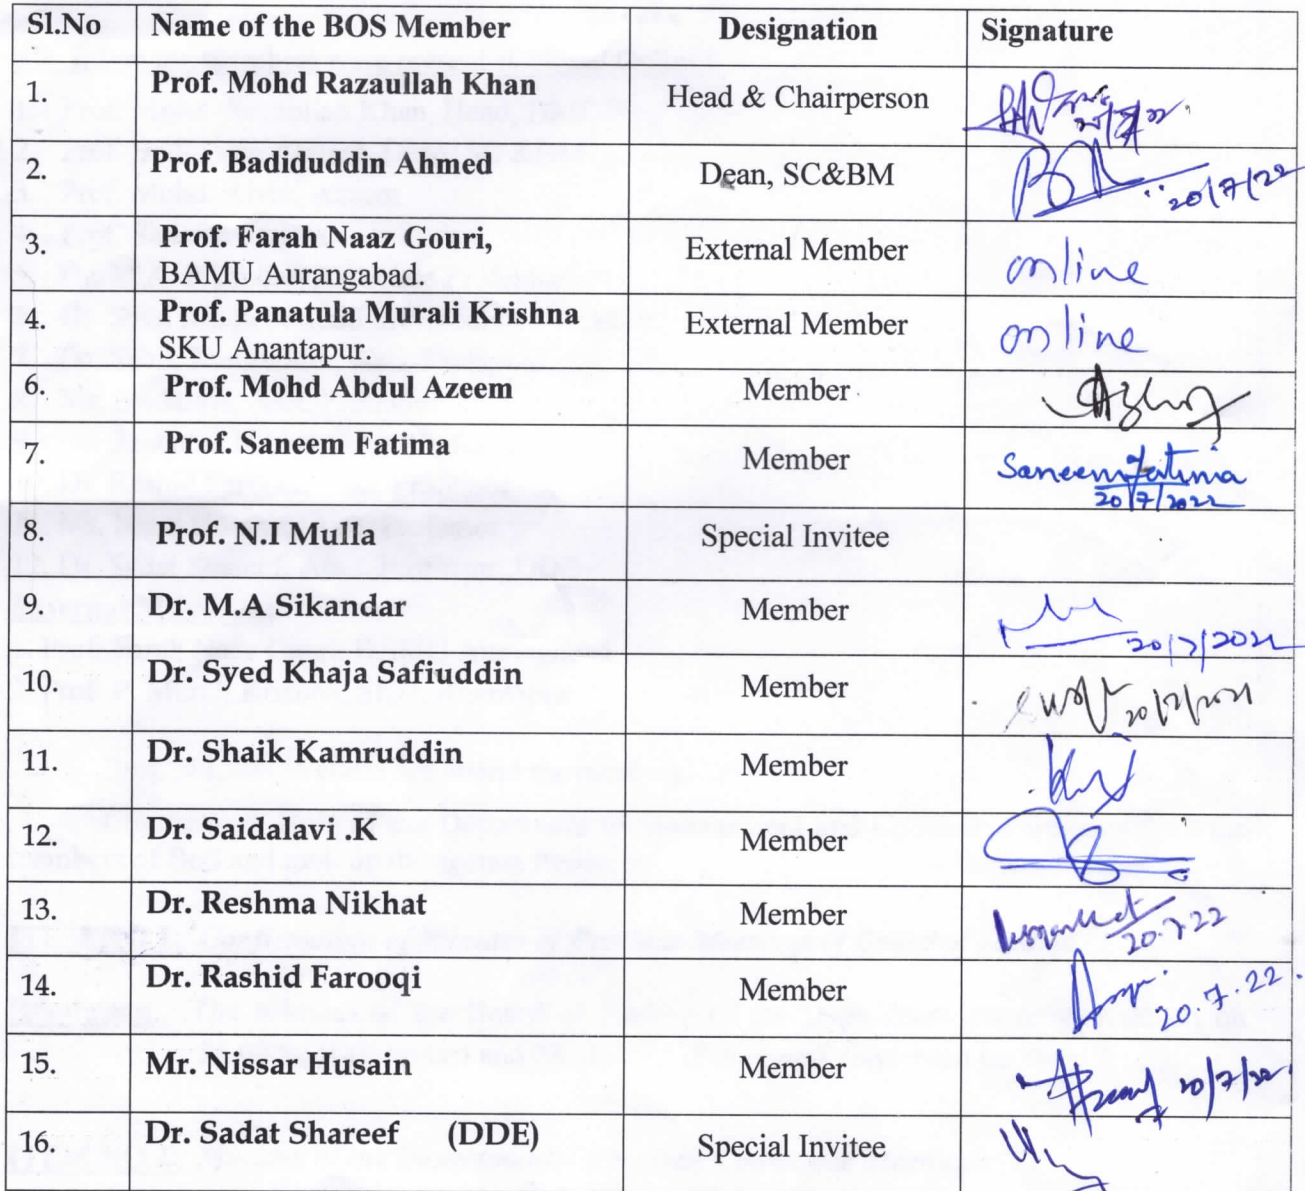 Sl.No Name of the BOS Member Designation Signature
1. Prof. Mohd Razaullah Khan Head & Chairperson
2. Prof. Badiduddin Ahmed Dean, SC&BM 20/7/22
3. Prof. Farah Naaz Gouri, External Member online
BAMU Aurangabad.
4. Prof. Panatula Murali Krishna External Member online
SKU Anantapur.
6. Prof. Mohd Abdul Azeem Member
7. Prof. Saneem Fatima Member Saneem fatima
20/7/2022
8. Prof. N.I Mulla Special Invitee
9. Dr. M.A Sikandar Member 20/7/2022
10. Dr. Syed Khaja Safiuddin Member
11. Dr. Shaik Kamruddin Member
12. Dr. Saidalavi .K Member
13. Dr. Reshma Nikhat Member
20.7.22
14. Dr. Rashid Farooqi Member
20.7.22.
15. Mr. Nissar Husain Member 20/7/22
16. Dr. Sadat Shareef (DDE) Special Invitee